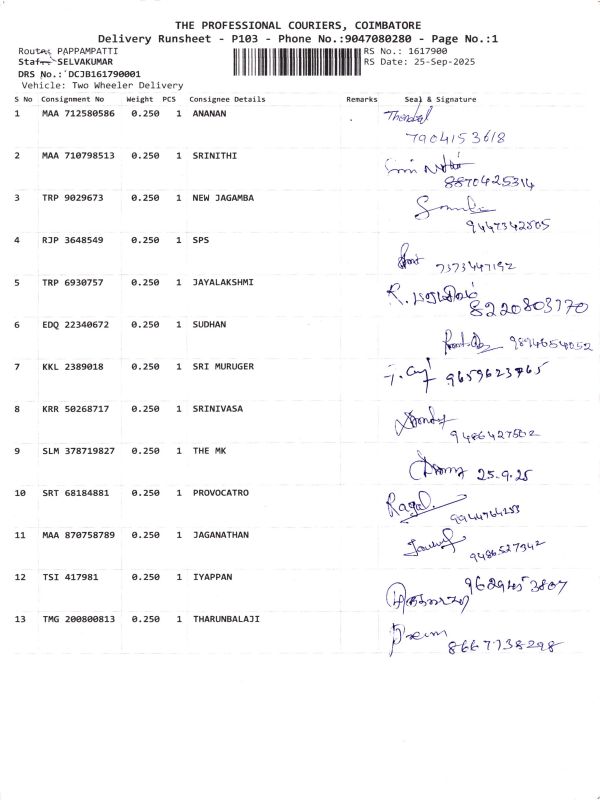 THE PROFESSIONAL COURIERS, COIMBATORE
Delivery Runsheet - P103 - Phone No.:9047080280 - Page No.:1
Route: PAPPAMPATTI
Staff: SELVAKUMAR
DRS No.: DCJB161790001
Vehicle: Two Wheeler Delivery
RS No.: 1617900
RS Date: 25-Sep-2025
S No Consignment No Weight PCS Consignee Details Remarks Seal & Signature
1 MAA 712580586 0.250 1 ANANAN
7904153618
2 MAA 710798513 0.250 1 SRINITHI
8870425314
3 TRP 9029673 0.250 1 NEW JAGAMBA
9447342805
4 RJP 3648549 0.250 1 SPS
7373447192
5 TRP 6930757 1 0.250 JAYALAKSHMI
8220803770
6 EDQ 22340672 0.250 1 SUDHAN
9894654052
7 KKL 2389018 0.250 1 SRI MURUGER
9659623765
8 KRR 50268717 0.250 1 SRINIVASA
9486427502
9 SLM 378719827 0.250 1 THE MK
25.9.25
10 SRT 68184881 0.250 1 PROVOCATRO
Ragal
9944764253
11 MAA 870758789 0.250 1 JAGANATHAN
9486527942
12 TSI 417981 0.250 1 IYAPPAN
9629453807
13 TMG 200800813 0.250 1 THARUNBALAJI
8667738298